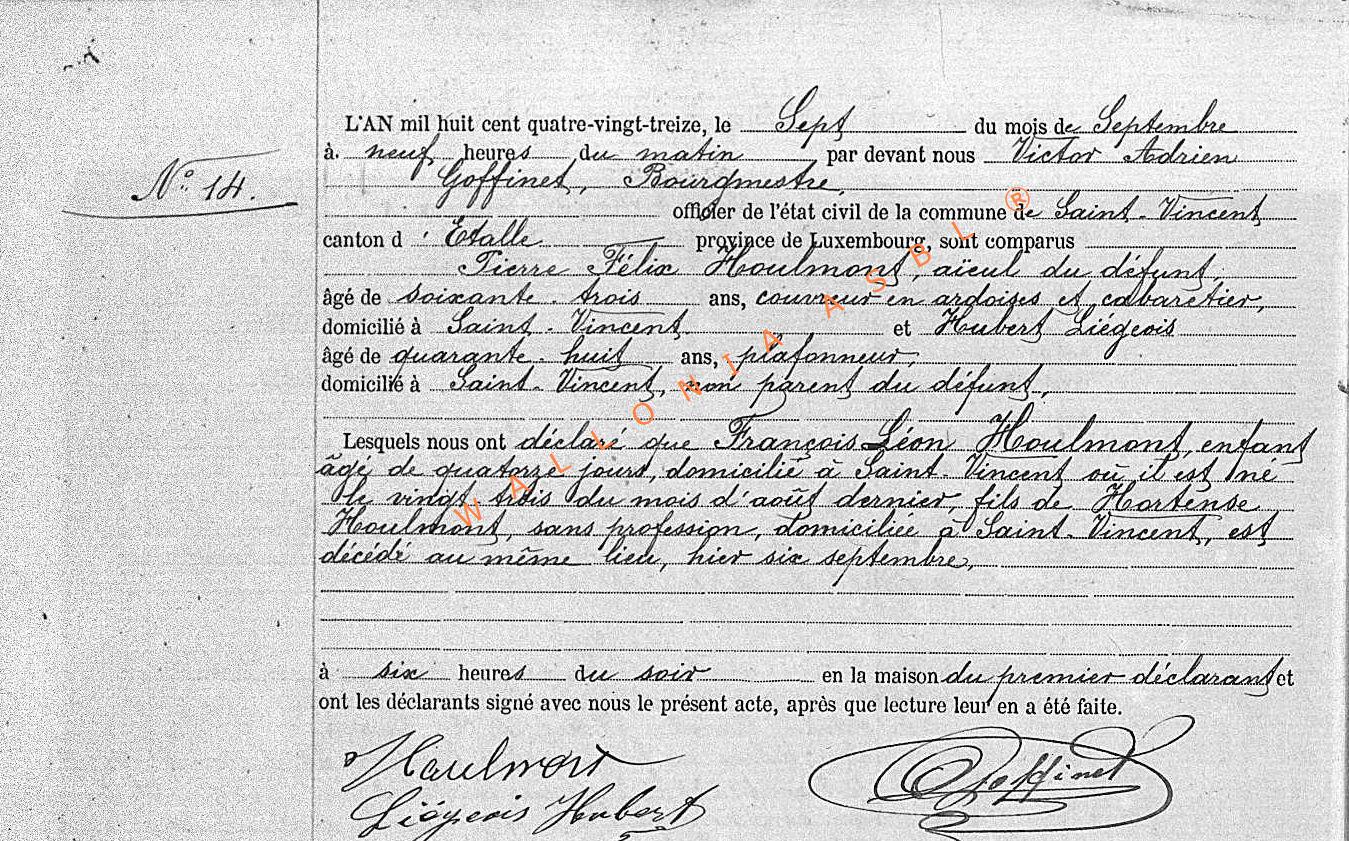 N° 14.
L'AN mil huit cent quatre-vingt-treize, le Sept du mois de Septembre
à neuf heures du matin par devant nous Victor Adrien
Goffinet, Bourgmestre,
officier de l'état civil de la commune de Saint-Vincent
canton d'Etalle province de Luxembourg, sont comparus
Pierre Félix Houlmont, aïeul du défunt,
âgé de soixante-trois ans, couvreur en ardoises et cabaretier,
domicilié à Saint-Vincent et Hubert Liégeois
âgé de quarante-huit ans, plafonneur,
domicilié à Saint-Vincent, non parent du défunt,
Lesquels nous ont déclaré que François Léon Houlmont, enfant
âgé de quatorze jours, domicilié à Saint-Vincent où il est né
le vingt trois du mois d'août dernier, fils de Hortense
Houlmont, sans profession, domiciliée à Saint-Vincent, est
décédé au même lieu, hier six septembre,
à six heures du soir en la maison du premier déclarant et
ont les déclarants signé avec nous le présent acte, après que lecture leur en a été faite.
Houlmont
Goffinet
Liégeois Hubert
WALLONIA ASBL ®